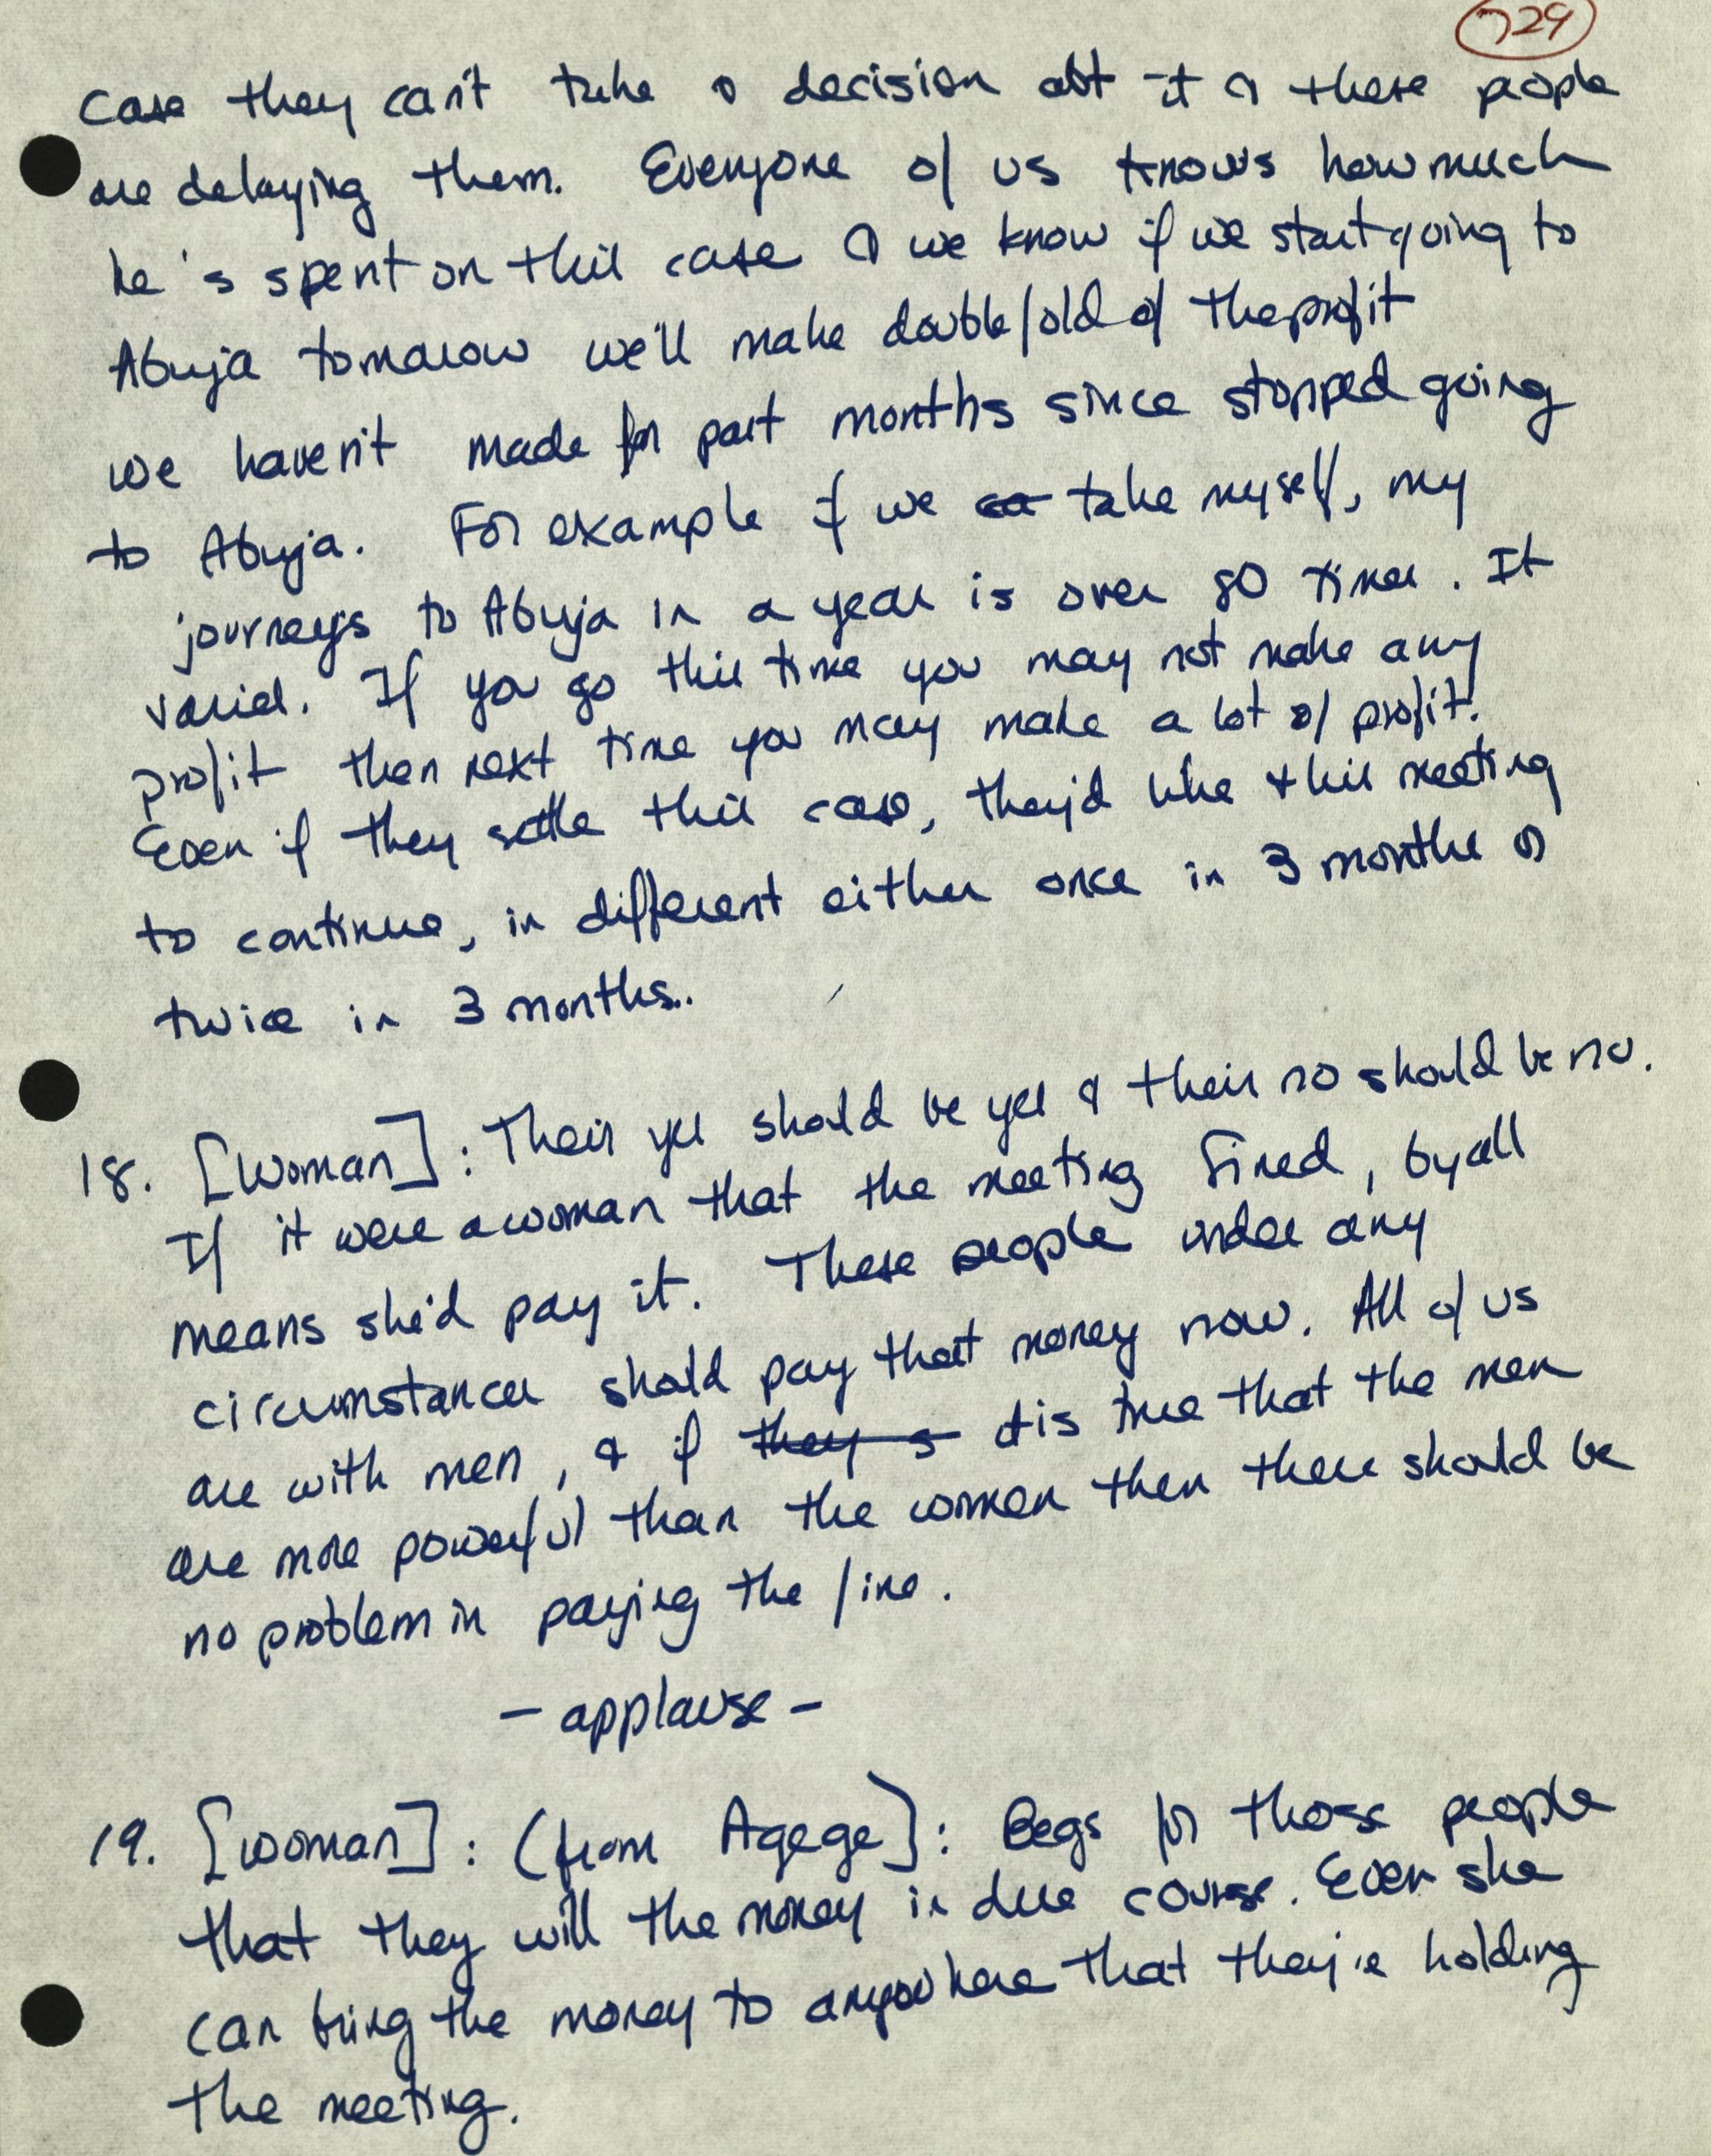 729
case they can't take a decision abt it & these people
are delaying them. Everyone of us knows how much
he's spent on this case & we know if we start going to
Abuja tomarow we'll make doublefold of the profit
we haven't made for past months since stopped going
to Abuja. For example if we ca take myself, my
journeys to Abuja in a year is over 80 times. It
varied. If you go this time you may not make any
profit then next time you may make a lot of profit.
Even if they settle this case, they'd like this meeting
to continue, in different either once in 3 months or
twice in 3 months..
18. [Woman]: Their yes should be yes & their no should be no.
If it were a woman that the meeting fined, by all
means she'd pay it. These people under any
circumstances should pay that money now. All of us
are with men, & if they s it is true that the men
are more powerful than the women then there should be
no problem in paying the fine.
- applause -
19. [Woman]: (from Agege]: Begs for those people
that they will the money in due course. Even she
can bring the money to anywhere that they're holding
the meeting.